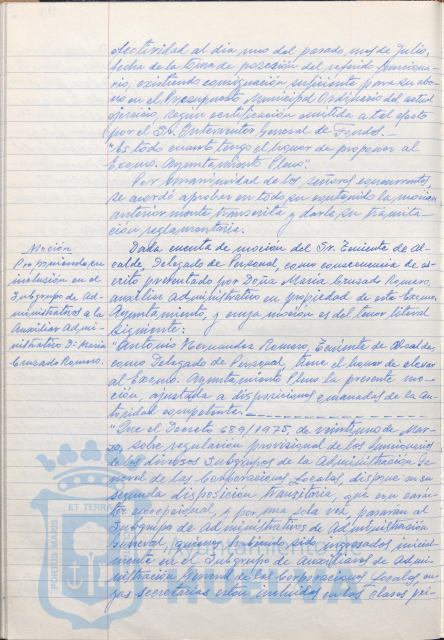 efectividad al día uno del pasado mes de Julio,
fecha de la toma de posesión del referido funciona-
rio, existiendo consignación suficiente para su abo-
no en el Presupuesto Municipal Ordinario del actual
ejercicio, según certificación emitida a tal efecto
por el Sr. Interventor General de Fondos.-
"Es todo cuanto tengo el honor de proponer al
Excmo. Ayuntamiento Pleno".
Por unanimidad de los señores concurrentes,
se acordó aprobar en todo su contenido la moción
anteriormente transcrita y darle su tramita-
ción reglamentaria.
Moción
Proponiendo, en
inclusión en el
Subgrupo de Ad-
ministrativos a la
Auxiliar Admi-
nistrativo Dª María
Cruzado Romero.
Dada cuenta de moción del Sr. Teniente de Al-
calde, Delegado de Personal, como consecuencia de es-
crito presentado por Doña María Cruzado Romero,
auxiliar Administrativo en propiedad de este Excmo.
Ayuntamiento, y cuya moción es del tenor literal
siguiente:
"Antonio Hernández Romero, Teniente de Alcalde,
como Delegado de Personal, tiene el honor de elevar
al Excmo. Ayuntamiento Pleno la presente mo-
ción, ajustada a disposiciones emanadas de la au-
toridad competente.
"Que el Decreto 689/1975, de veintiuno de Mar-
zo, sobre regulación provisional de los funcionarios
de los diversos Subgrupos de la Administración Ge-
neral de las Corporaciones Locales, dispone en su
segunda disposición transitoria, que con carác-
ter excepcional, y por una sola vez, pasarán al
Subgrupo de Administrativos de Administración
General, quienes habiendo sido ingresados inicial-
mente en el Subgrupo de Auxiliares de Admi-
nistración General de las Corporaciones Locales, cu-
yas secretarías estén incluidas en las clases pri-
PORTUS MARIS
ET TERRÆ
Ayuntamiento de
HUELVA